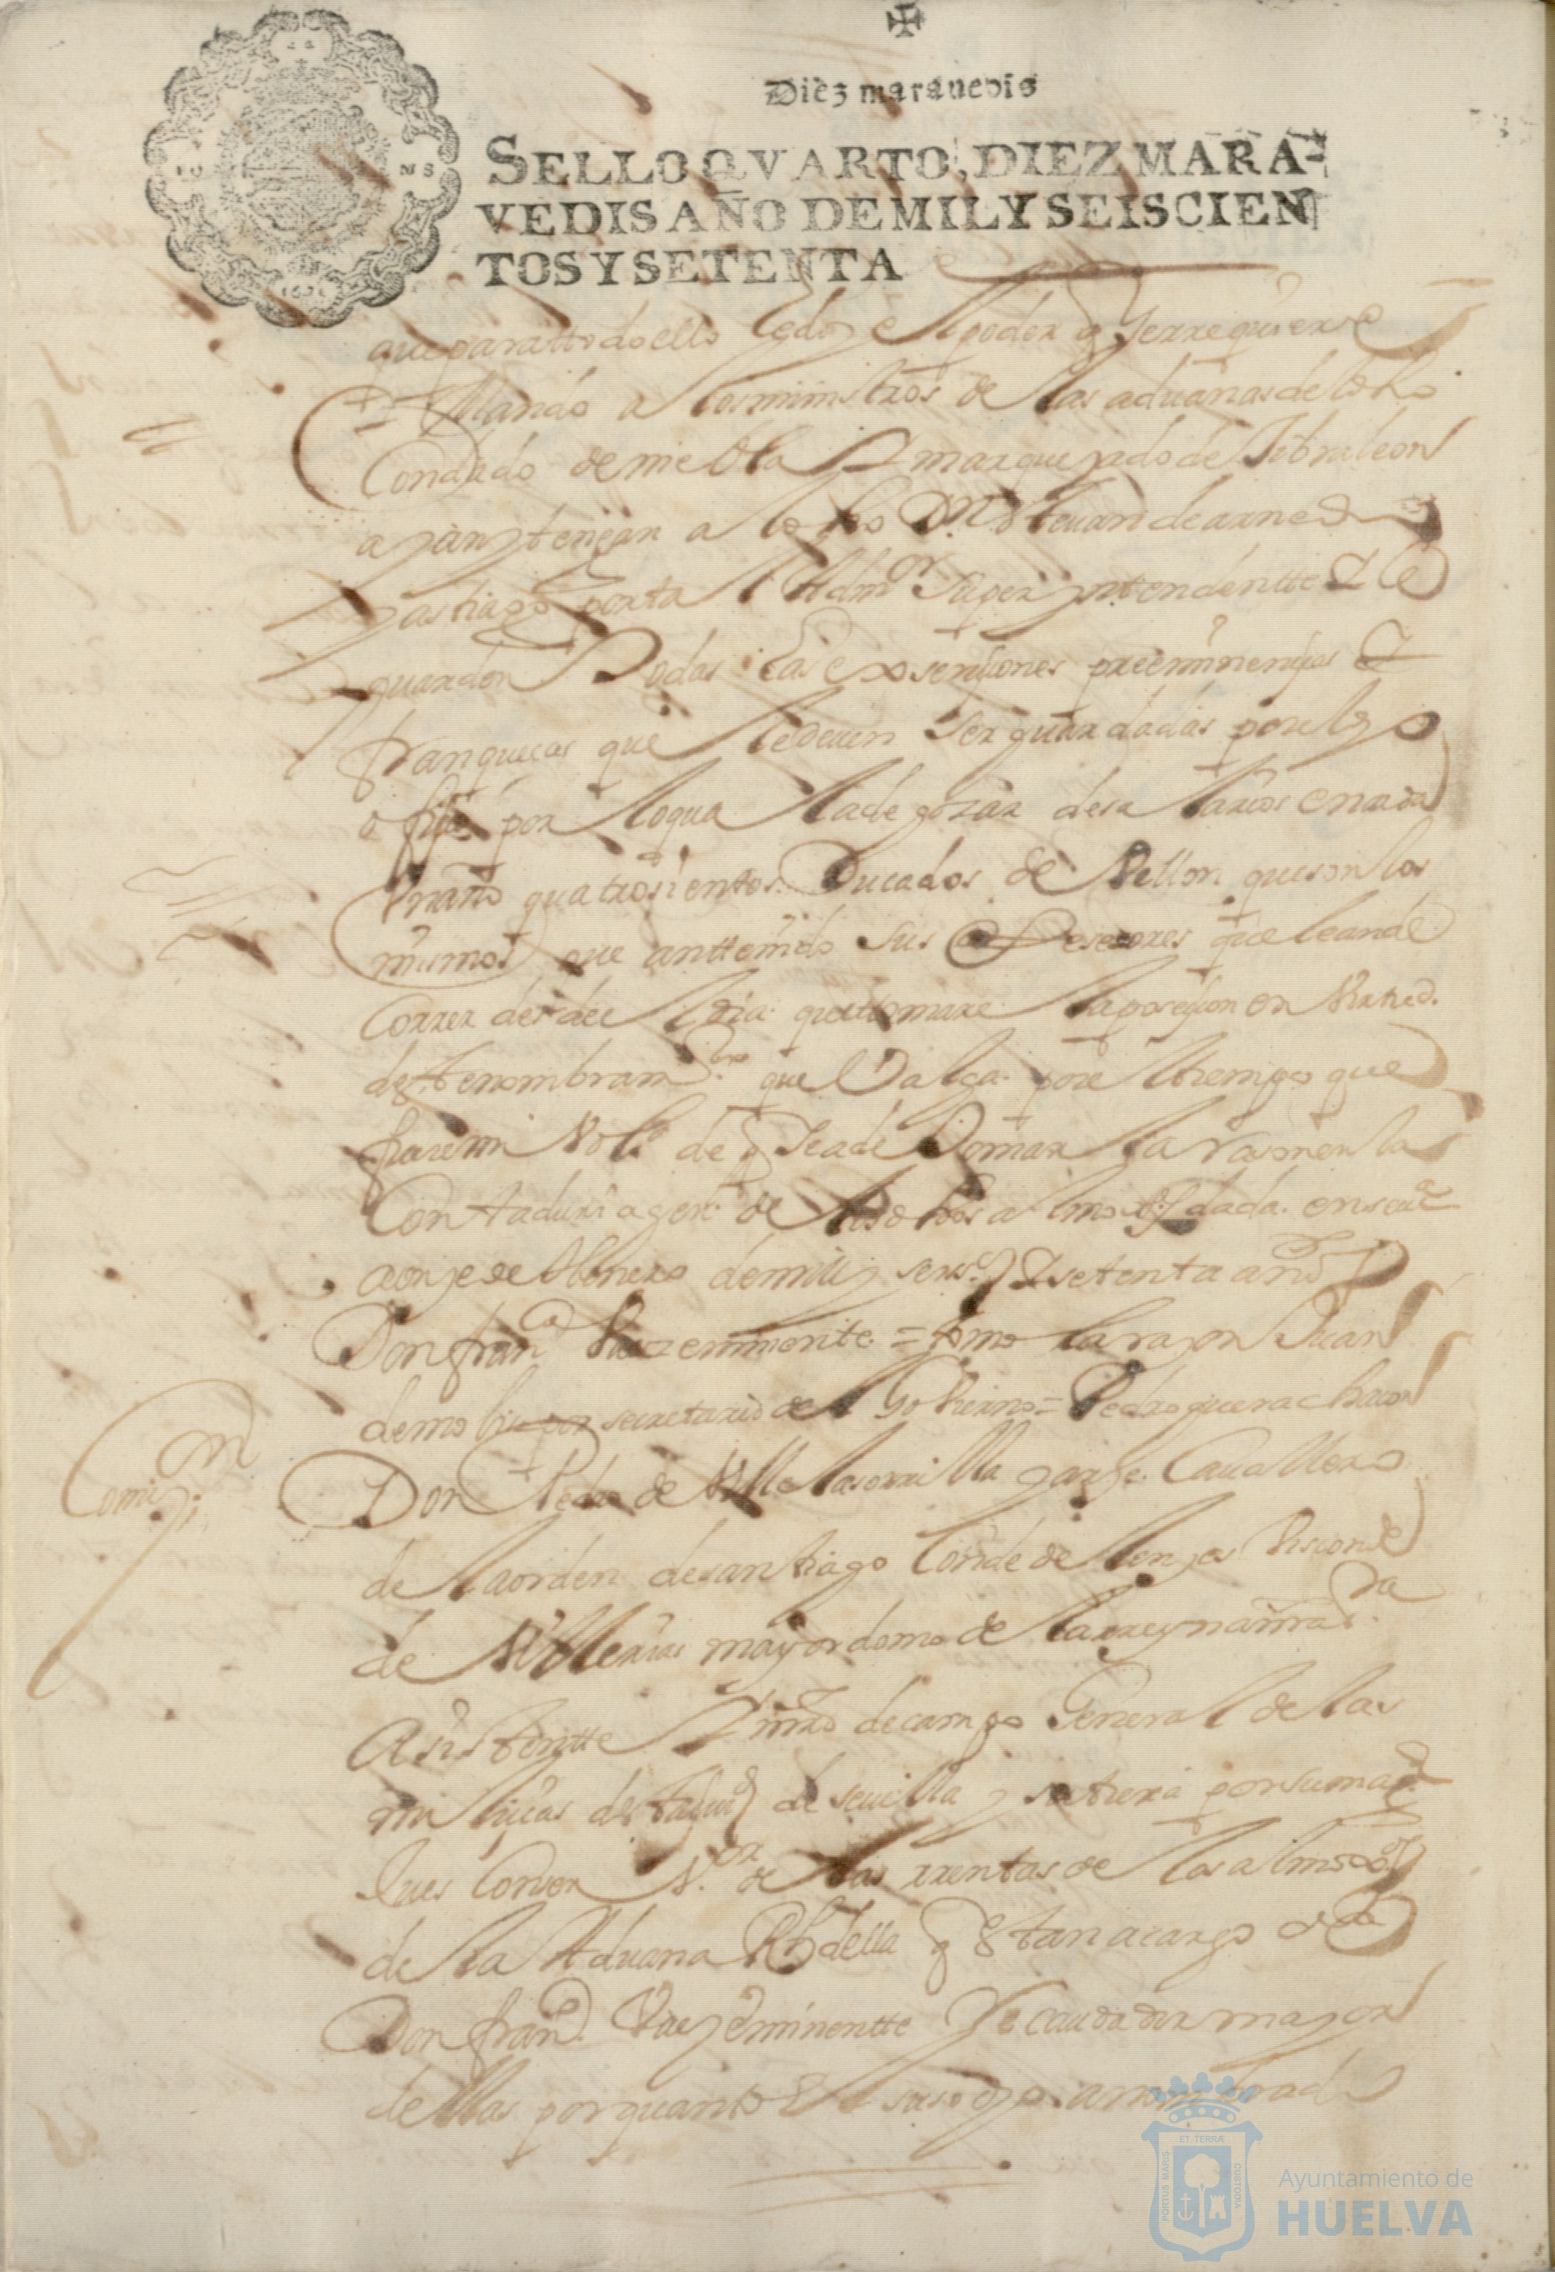 Diez marauedis
SELLO QVARTO, DIEZ MARA-
VEDIS AÑO DE MIL Y SEISCIEN
TOS Y SETENTA
que para todo ello le doy el poder q se rrequiere
Mando a los ministros de las aduanas de los dho
Condado de niebla Y marquesado de Jibraleon
ayan y tengan a dho Dn esteuan de arnedo
santiago por tal Admor Super yntendentte Y le
guarden Todas las exsenciones preeminençias Y
franqueças que le deuen ser guardadas por el dho
ofiçio por lo qual a de gozar de salarios en cada
Un año quatrosientos Ducados de Vellon que son los
mismos que an ttenido sus antesesores que le an de
Correr desde el dia que ttomare la poseçion en Virtud
deste nombramto que Valga por el tiempo que
fuere mi Voltd de q Se a de Tomar la rason en la
Contaduria genl de dhos almoxfdos dada en seuª
a onze de Henero de mill y seisos Y setenta años
Don franco Baez eminente = tomo la rason Juan
de mo secretario del Gouierno = Pedro guerra chacon
Comion
Don Pedro de Nille la sernilla y arze Cauallero
de la orden de santiago Conde de Vizconde
de Villerias mayordomo de la rreyna nra sra
Asistentte Y mro de campo General de las
miliçias desta çiud de seuilla y su tierra por su magd
Jues Conseror de las rrentas de los almoxos
de la Aduana della q estan a cargo de
Don franco Vaez eminentte Recaudador mayor
dellas por quanto el suso dho a nombrado
ET TERRÆ
PORTUS MARIS
CUSTODIA
Ayuntamiento de
HUELVA